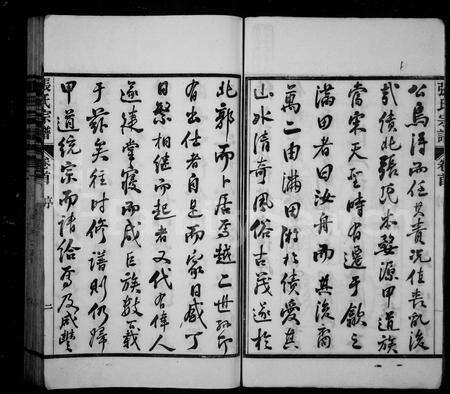 張氏宗譜
卷首
公烏得而任其責況值喪亂後
哉績北張氏本婺源甲道族
當宋天聖時有遷于歙之
滿田者曰汝舟而其後商
萬二由滿田游於績愛其
山水清奇風俗古茂遂於
北郭而卜居焉越二世孫即
有出仕者自是而家日盛丁
日繁相繼而起者又代有偉人
遂建堂寢而成巨族數百載
于茲矣往時修譜則仍歸
甲道統宗而請給焉及咸豐
張氏宗譜
卷首 序
二